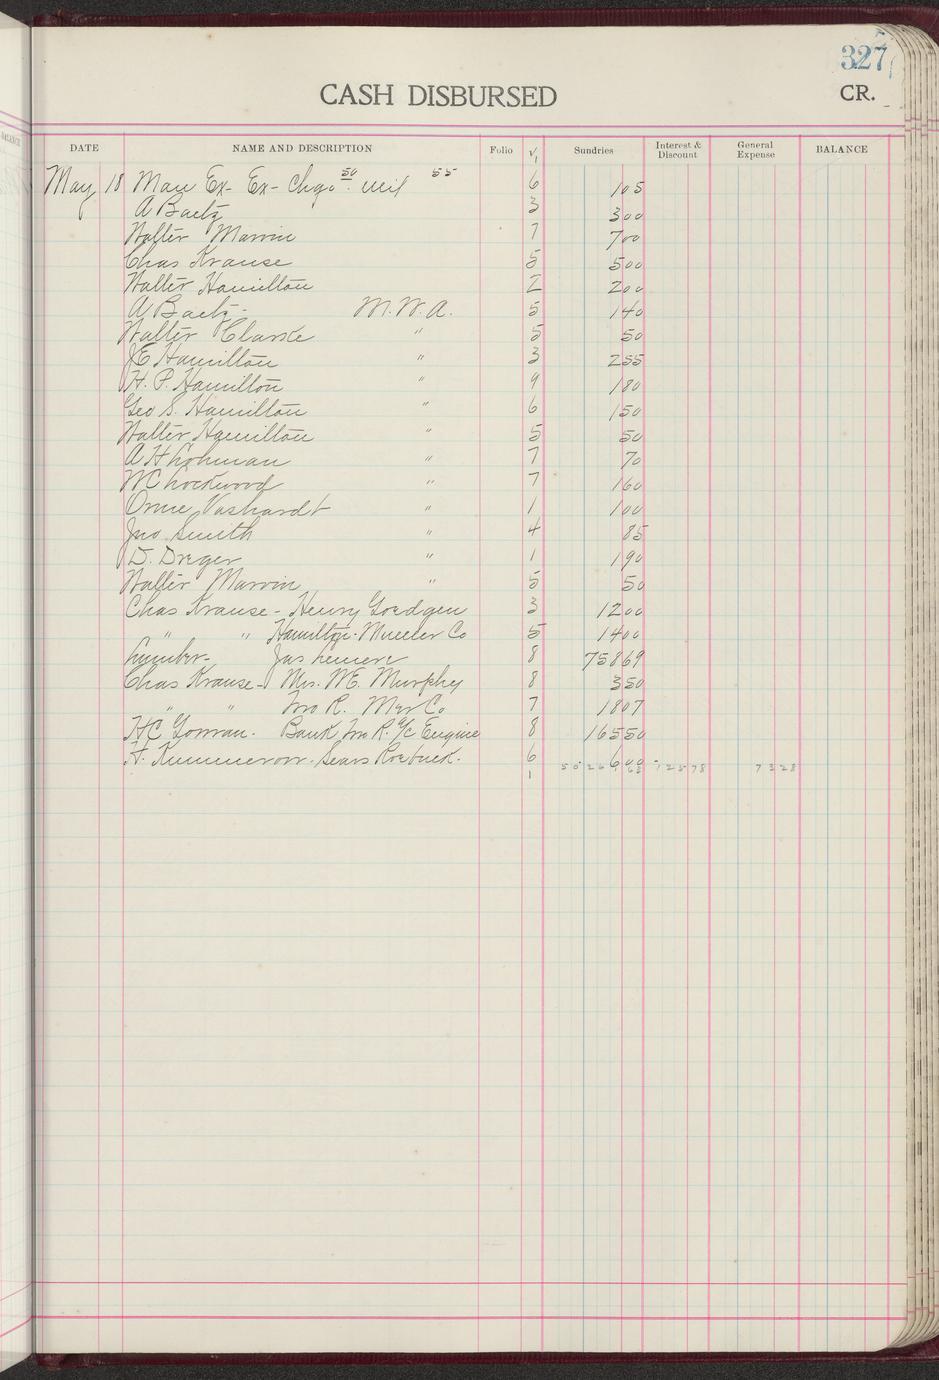 327
CASH DISBURSED
CR.
DATE NAME AND DESCRIPTION Folio √ Sundries Interest & Discount General Expense BALANCE
May 18 Man Ex- Ex- Chgo 50 mil 55 6 105
A Baetz 3 300
Walter Marvin 7 700
Chas Krause 5 500
Walter Hamilton 2 200
A Baetz- M.W.A. 5 140
Walter Clarke " 5 50
JE Hamilton " 3 255
H. P. Hamilton " 9 180
Geo S. Hamilton " 6 150
Walter Hamilton " 5 50
A H Lohman " 7 70
WC Lockwood " 7 160
Orme Vashardt " 1 100
Jno Smith " 4 85
D. Dreger " 1 190
Walter Marvin " 5 50
Chas Krause - Henry Goedgen 3 1200
" " Hamilton Mueller Co 5 1400
Lumber- Jas 8 75869
Chas Krause- Mrs. WE. Murphy 8 350
" " Two R. Mfr Co 7 1807
HC Gorman. Bank Two R. a/c Engine 8 16550
H. Kummerow. Sears Roebuck. 6 600
1 12578 7328